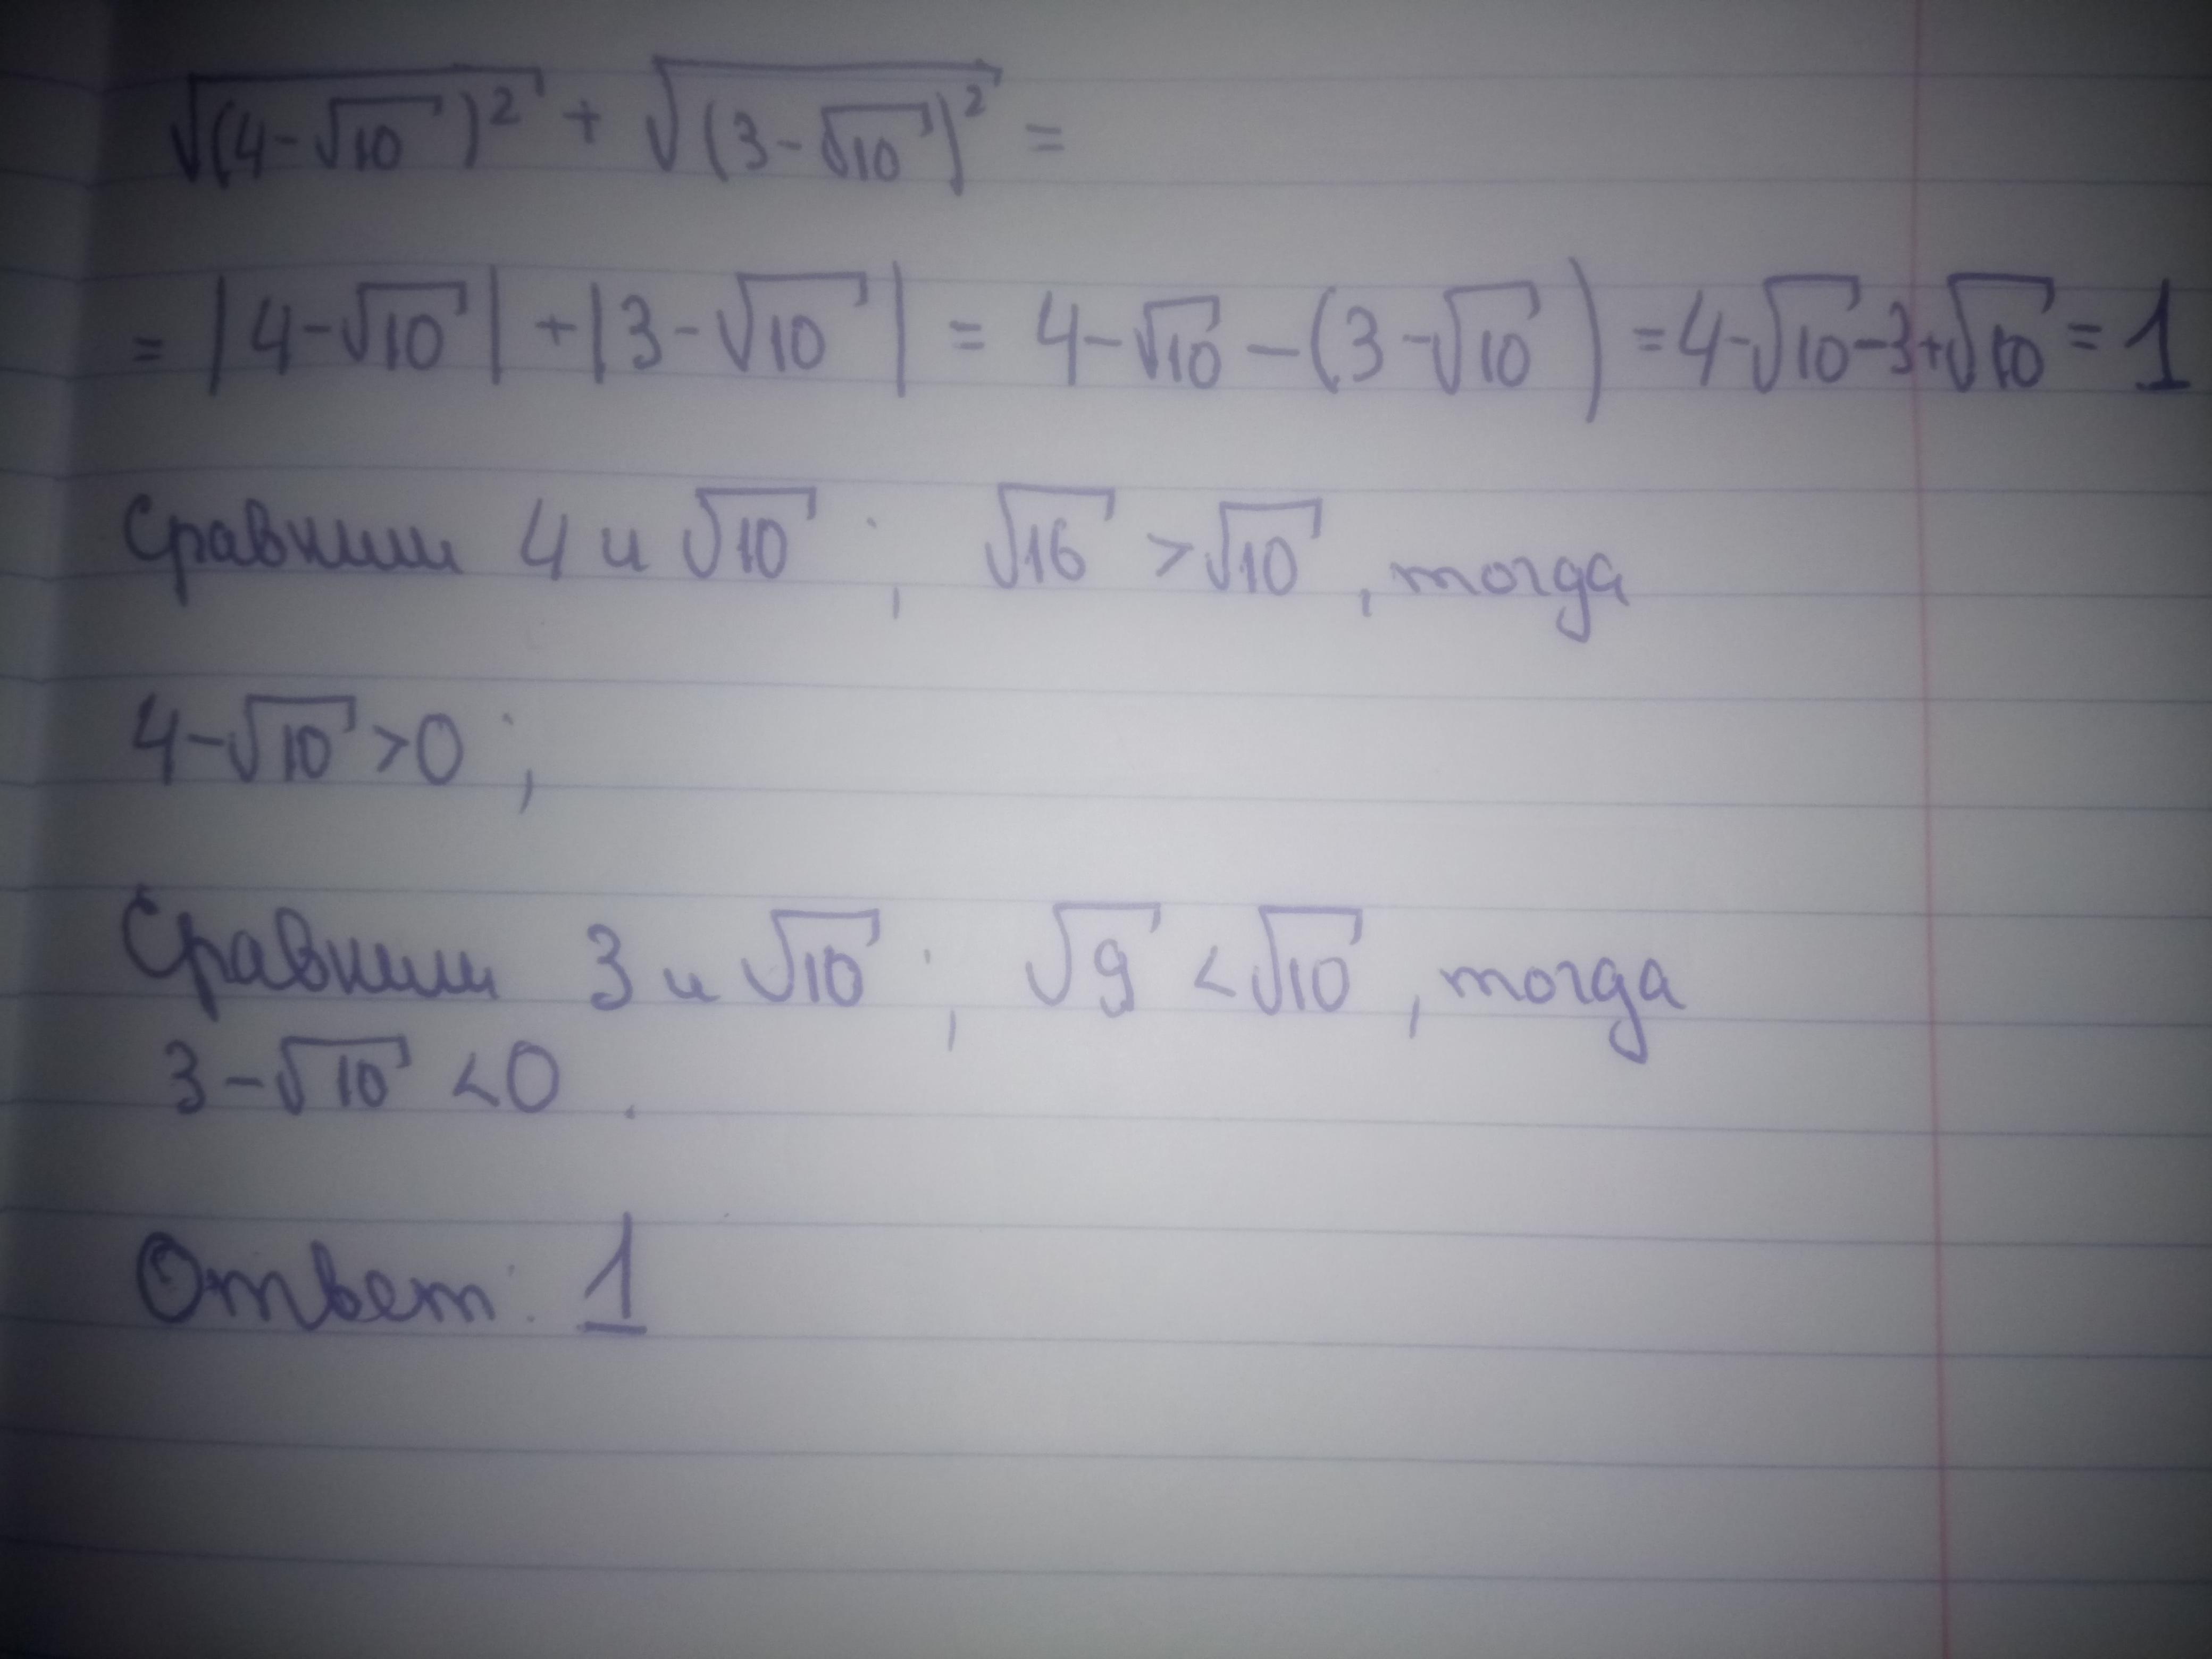 √(4-√10)² + √(3-√10)² =
= |4-√10| + |3-√10| = 4-√10 - (3-√10) = 4-√10-3+√10 = 1
Сравним 4 и √10 ; √16 > √10 , тогда
4-√10 >0 ;
Сравним 3 и √10 ; √9 < √10 , тогда
3-√10 <0 .
Ответ: 1